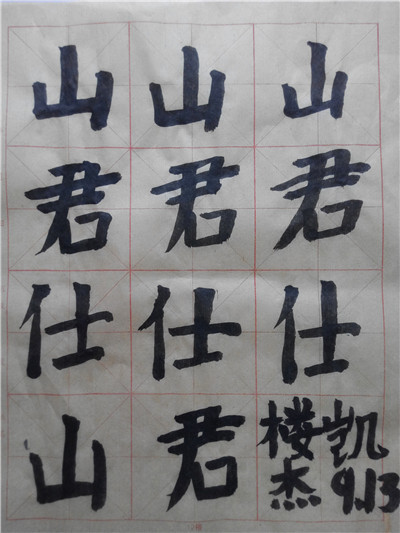 山山山
君君君
仕仕仕
山君
楼凯
杰9.13